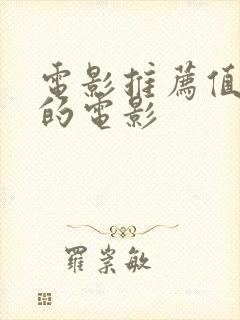 電影推薦值
的電影
羅崇敏